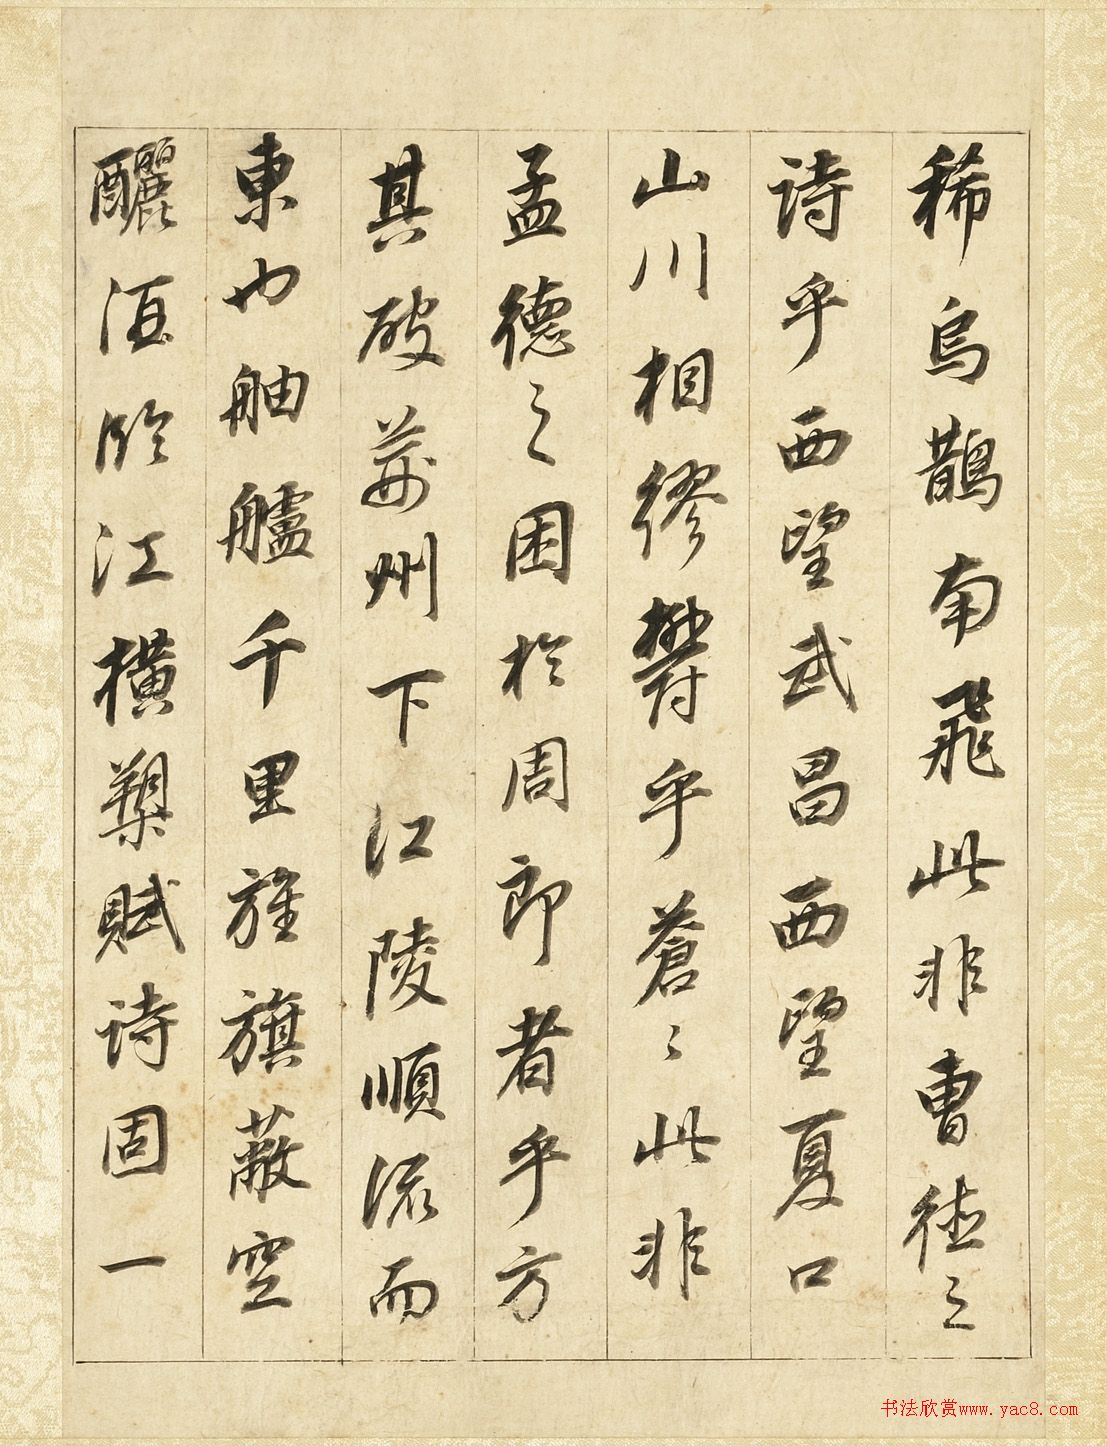 稀烏鵲南飛此非曹德之
詩乎西望武昌西望夏口
山川相繆鬱乎蒼〻此非
孟德之困於周郎者乎方
其破荊州下江陵順流而
東也舳艫千里旌旗蔽空
釃酒臨江橫槊賦詩固一
书法欣赏www.yac8.com